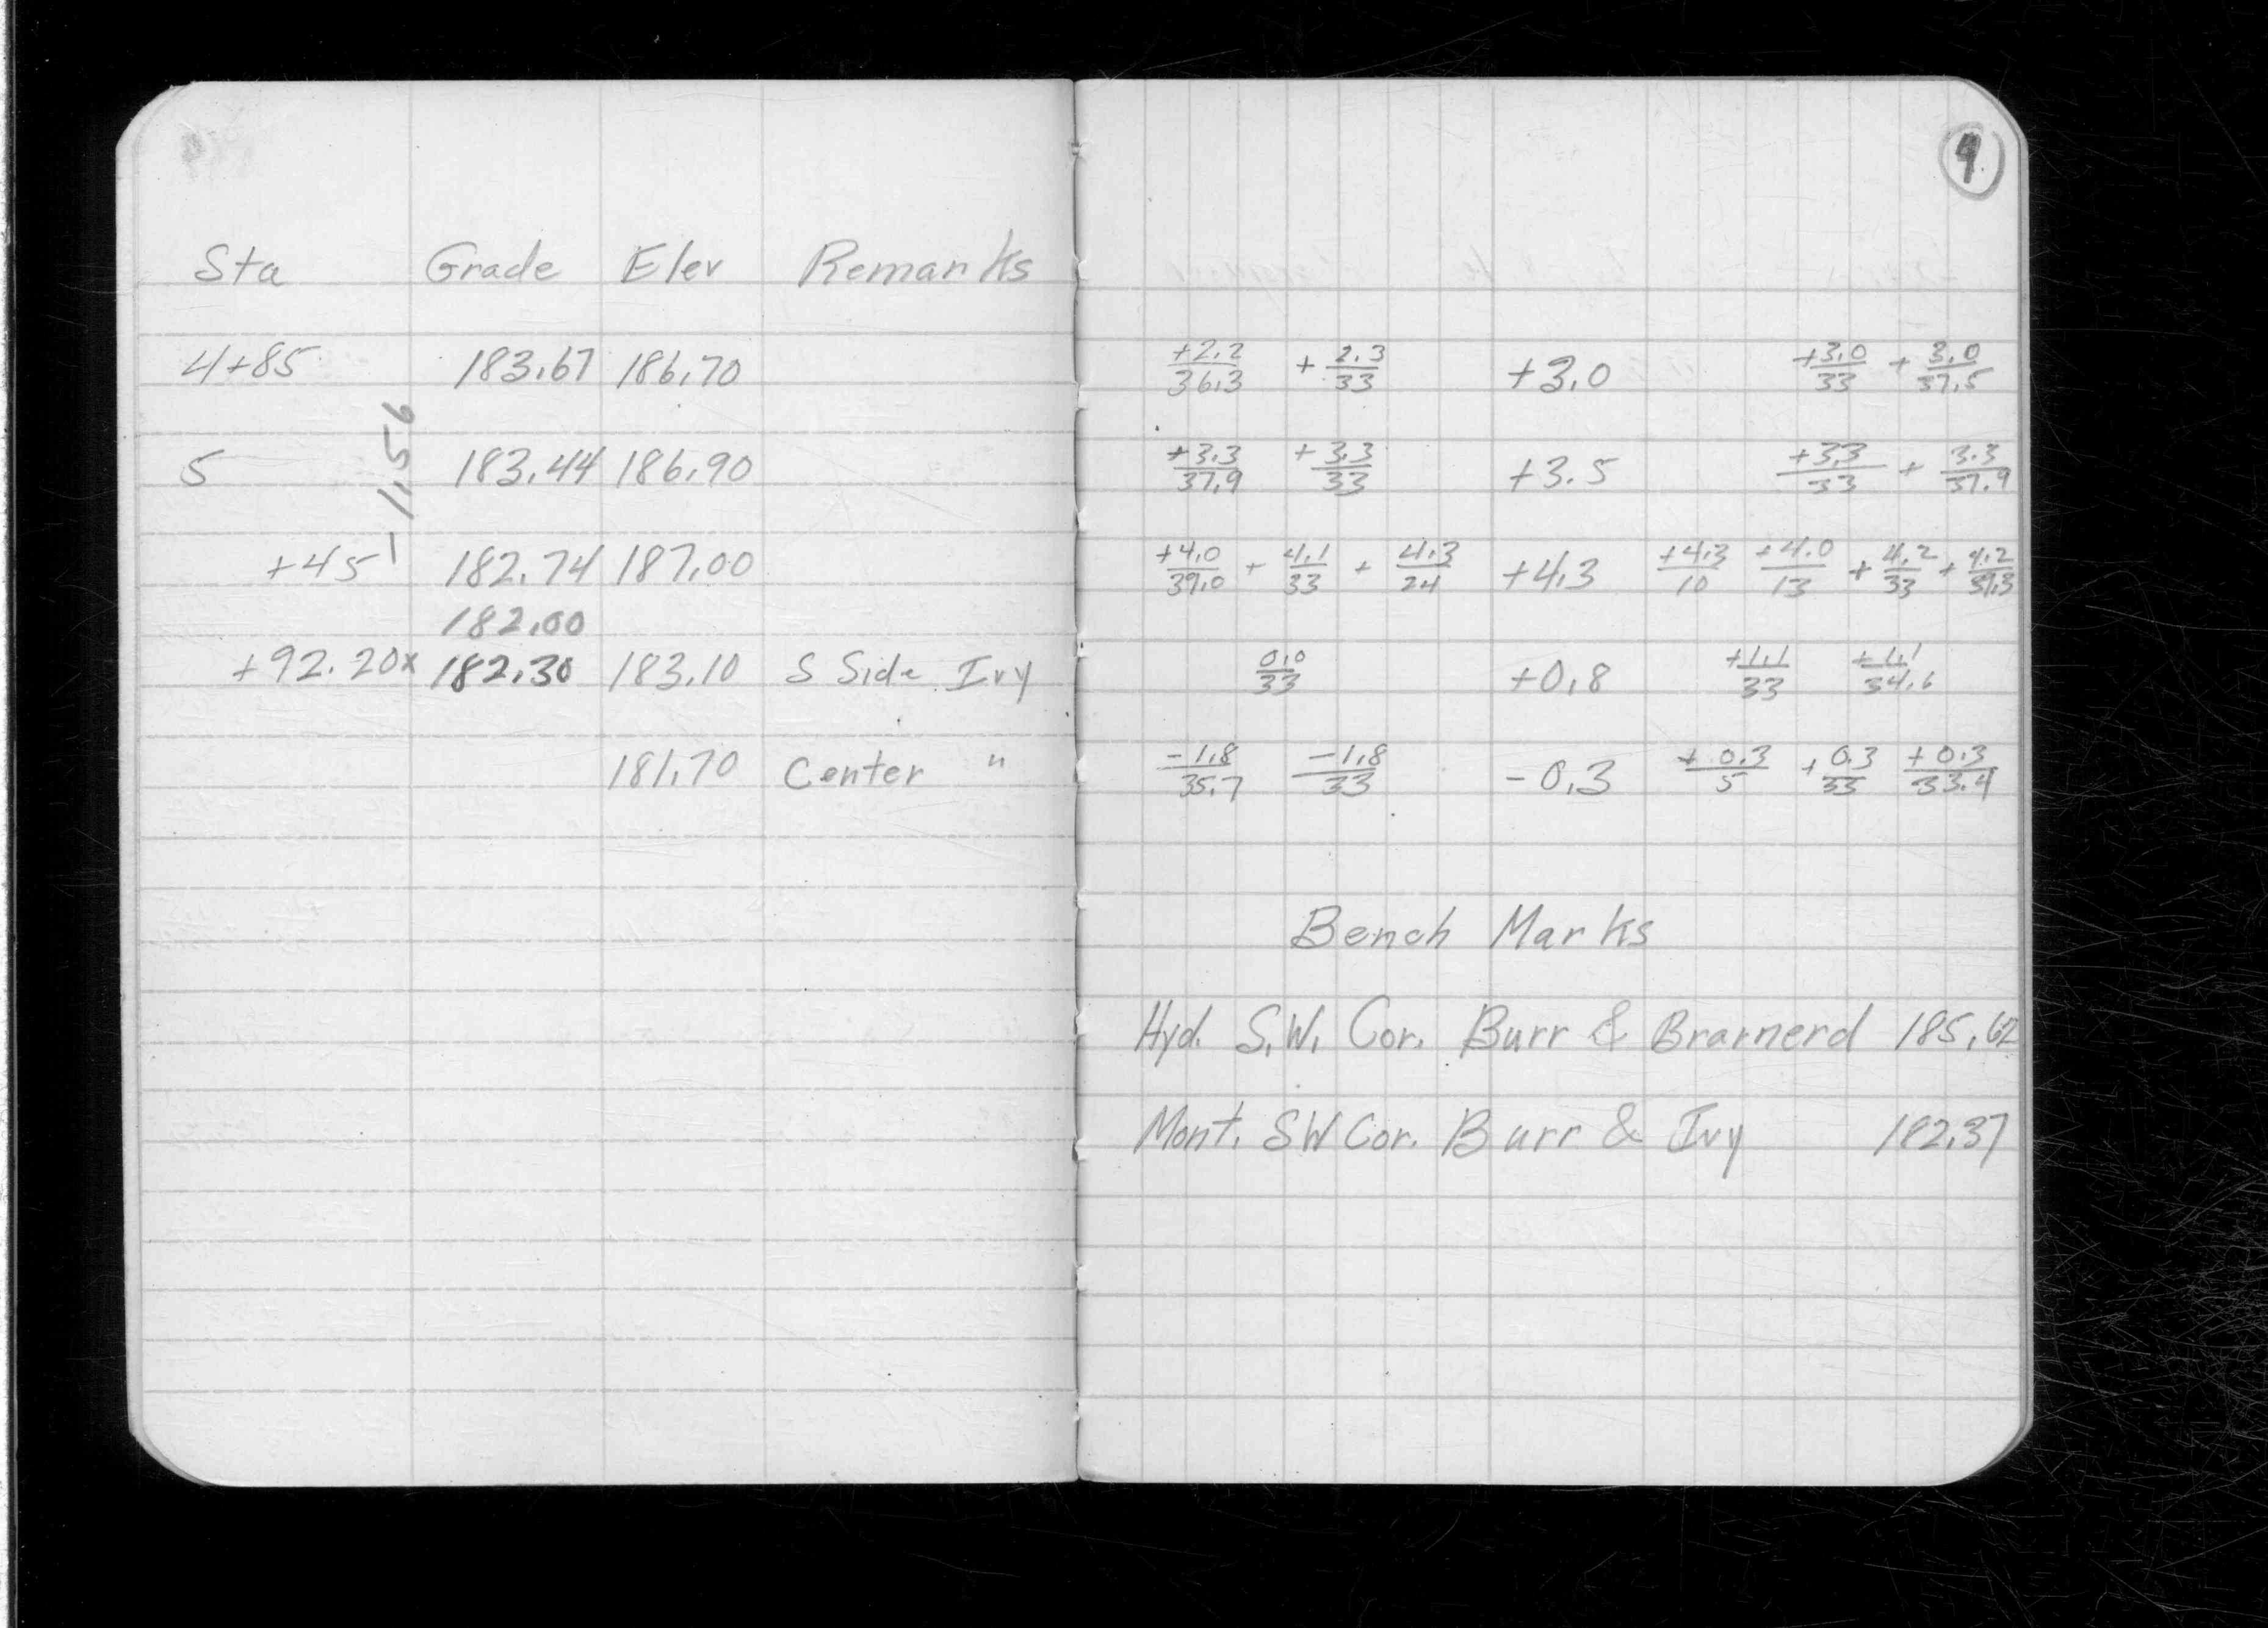 Sta Grade Elev Remarks
4+85 183.67 186.70
1.56
5 183.44 186.90
+45 182.74 187.00
182.00
+92.20x 182.30 183.10 S Side Ivy
181.70 Center "
+2.2/36.3 +2.3/33 +3.0 +3.0/33 +3.0/37.5
+3.3/37.9 +3.3/33 +3.5 +3.3/33 +3.3/37.9
+4.0/39.0 +4.1/33 +4.3/24 +4.3 +4.3/10 +4.0/13 +4.2/33 +4.2/39.3
0.0/33 +0.8 +1.1/33 +1.1/34.6
-1.8/35.7 -1.8/33 -0.3 +0.3/5 +0.3/33 +0.3/33.4
Bench Marks
Hyd. S.W. Cor. Burr & Brarnerd 185.62
Mont. SW Cor. Burr & Ivy 182.37